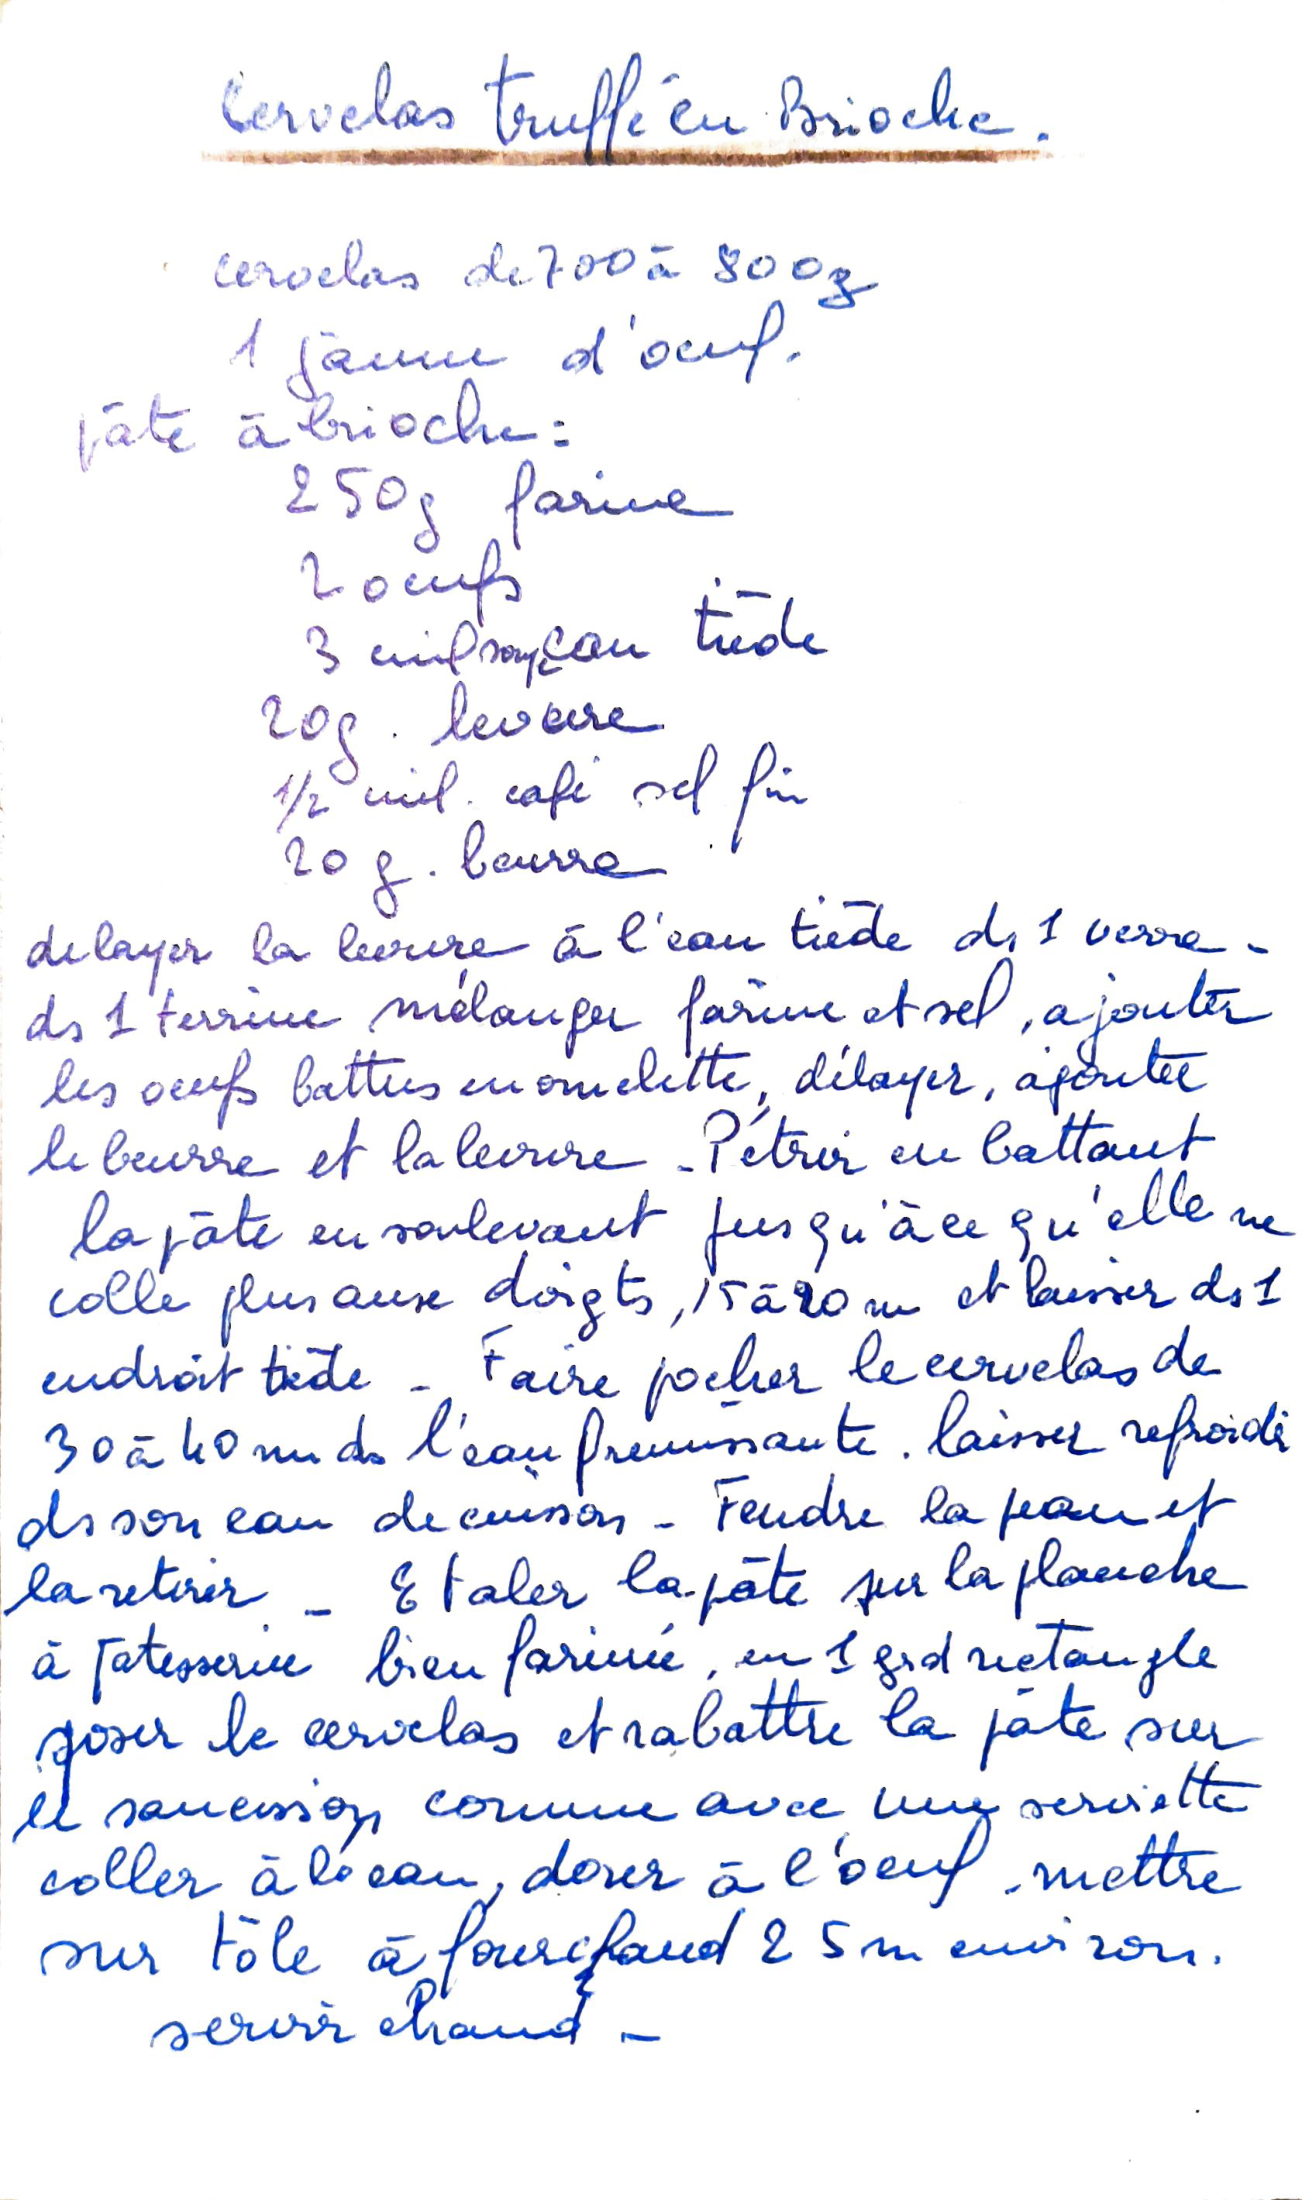 Cervelas truffé en Brioche.
cervelas de 700 à 800g
1 jaune d'oeuf.
pâte à brioche :
250g farine
2 oeufs
3 cuil soupe eau tiède
20g. levure
1/2 cuil. café sel fin
20 g. beurre
delayer la levure à l'eau tiède ds 1 verre -
ds 1 terrine mélanger farine et sel, ajouter
les oeufs battus en omelette, délayer, ajouter
le beurre et la levure - Pétrir en battant
la pâte en soulevant jusqu'à ce qu'elle ne
colle plus aux doigts, 15 à 20 m et laisser ds 1
endroit tiède - Faire pocher le cervelas de
30 à 40 mn ds l'eau fremissante. laisser refroidir
ds son eau de cuisson - Fendre la peau et
la retirer - Etaler la pâte sur la planche
à patisserie bien farinée, en 1 grd rectangle
poser le cervelas et rabattre la pâte sur
le saucisson comme avec une serviette
coller à l'eau, dorer à l'oeuf. mettre
sur tôle à four chaud 25 m environ.
servir chaud -